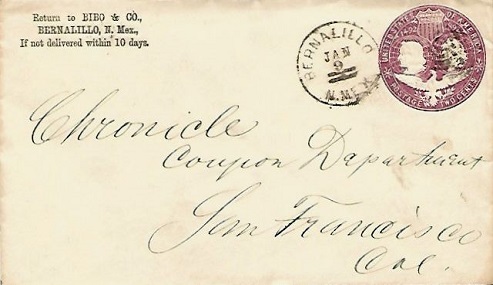 Return to BIBO & CO.,
BERNALILLO, N. Mex.,
If not delivered within 10 days.
BERNALILLO
JAN
9
N. MEX.
UNITED STATES OF AMERICA
POSTAGE TWO CENTS
Chronicle
Coupon Department
San Francisco
Cal.